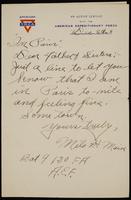 ON ACTIVE SERVICE
WITH THE
AMERICAN EXPEDITIONARY FORCE
In Paris.
Dear Father & Sisters:
Just a line to let you
know that I am
in Paris to-nite
and feeling fine.
Some town.
Yours truly,
Milo H.
Bat F 120 F.A.
A.E.F.